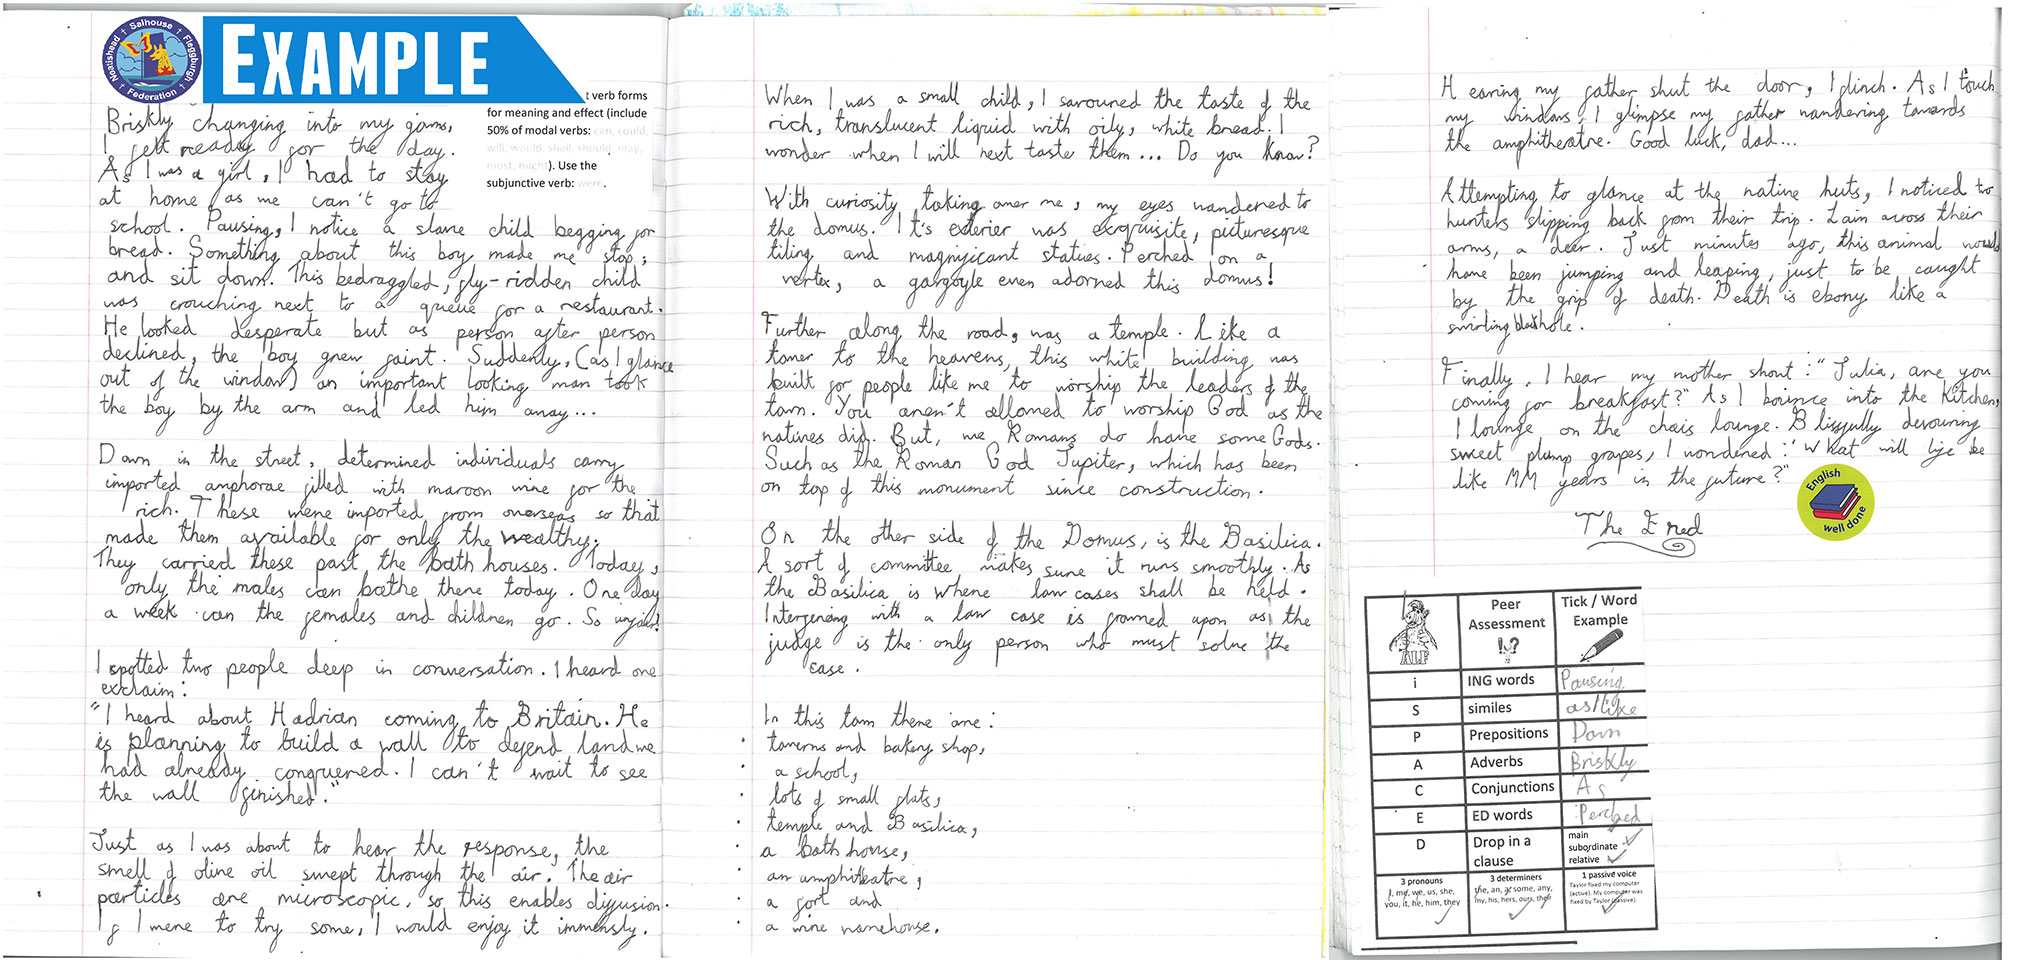 Salhouse
Neatishead
Fleggburgh
Federation
EXAMPLE
t verb forms
for meaning and effect (include
50% of modal verbs: can, could,
will, would, shall, should, may,
must, might). Use the
subjunctive verb: were.
Briskly changing into my gorms,
I felt ready for the day.
As I was a girl, I had to stay
at home as we can't go to
school. Pausing, I notice a slave child begging for
bread. Something about this boy made me stop;
and sit down. This bedraggled, fly-ridden child
was crouching next to a queue for a restaurant.
He looked desperate but as person after person
declined, the boy grew faint. Suddenly, (as I glance
out of the window) an important looking man took
the boy by the arm and led him away...
Down in the street, determined individuals carry
imported amphorae filled with maroon wine for the
rich. These were imported from overseas so that
made them available for only the wealthy.
They carried these past the bath houses. Today,
only the males can bathe there today. One day
a week can the females and children go. So unfair!
I spotted two people deep in conversation. I heard one
exclaim:
"I heard about Hadrian coming to Britain. He
is planning to build a wall to defend land we
had already conquered. I can't wait to see
the wall finished."
Just as I was about to hear the response, the
smell of olive oil swept through the air. The air
particles are microscopic, so this enables diffusion.
If I were to try some, I would enjoy it immensly.
When I was a small child, I savoured the taste of the
rich, translucent liquid with oily, white bread. I
wonder when I will next taste them... Do you know?
With curiosity taking over me, my eyes wandered to
the domus. It's exterier was exquisite, picturesque
tiling and magnificant statues. Perched on a
vertex, a gargoyle even adorned this domus!
Further along the road, was a temple. Like a
tower to the heavens, this white building was
built for people like me to worship the leaders of the
town. You aren't allowed to worship God as the
natives did. But, we Romans do have some Gods.
Such as the Roman God Jupiter, which has been
on top of this monument since construction.
On the other side of the Domus, is the Basilica.
A sort of committee makes sure it runs smoothly. As
the Basilica is where law cases shall be held.
Interfering with a law case is frowned upon as the
judge is the only person who must solve the
case.
In this town there are:
• taverns and bakery shop,
• a school,
• lots of small flats,
• temple and Basilica,
• a bath house,
• an amphiteatre,
• a fort and
• a wine warehouse.
Hearing my father shut the door, I flinch. As I touch
my windows, I glimpse my father wandering towards
the amphitheatre. Good luck, dad...
Attempting to glance at the native huts, I noticed two
hunters slipping back from their trip. Lain across their
arms, a deer. Just minutes ago, this animal would
have been jumping and leaping, just to be caught
by the grip of death. Death is ebony like a
swirling blackhole.
Finally, I hear my mother shout: "Julia, are you
coming for breakfast?" As I bounce into the kitchen,
I lounge on the chais lounge. Blissfully devouring
sweet plump grapes, I wondered: "What will life be
like MM years in the future?"
The End
English
well done
ALF
Peer
Assessment
!,?
Tick / Word
Example
i ING words Pausing
S similes as/like
P Prepositions Down
A Adverbs Briskly
C Conjunctions As
E ED words Perched
D Drop in a
clause
main
subordinate
relative
3 pronouns
I, me, we, us, she,
you, it, he, him, they
3 determiners
the, an, a, some, any,
my, his, hers, ours, their
1 passive voice
Taylor fixed my computer
(active). My computer was
fixed by Taylor (passive).